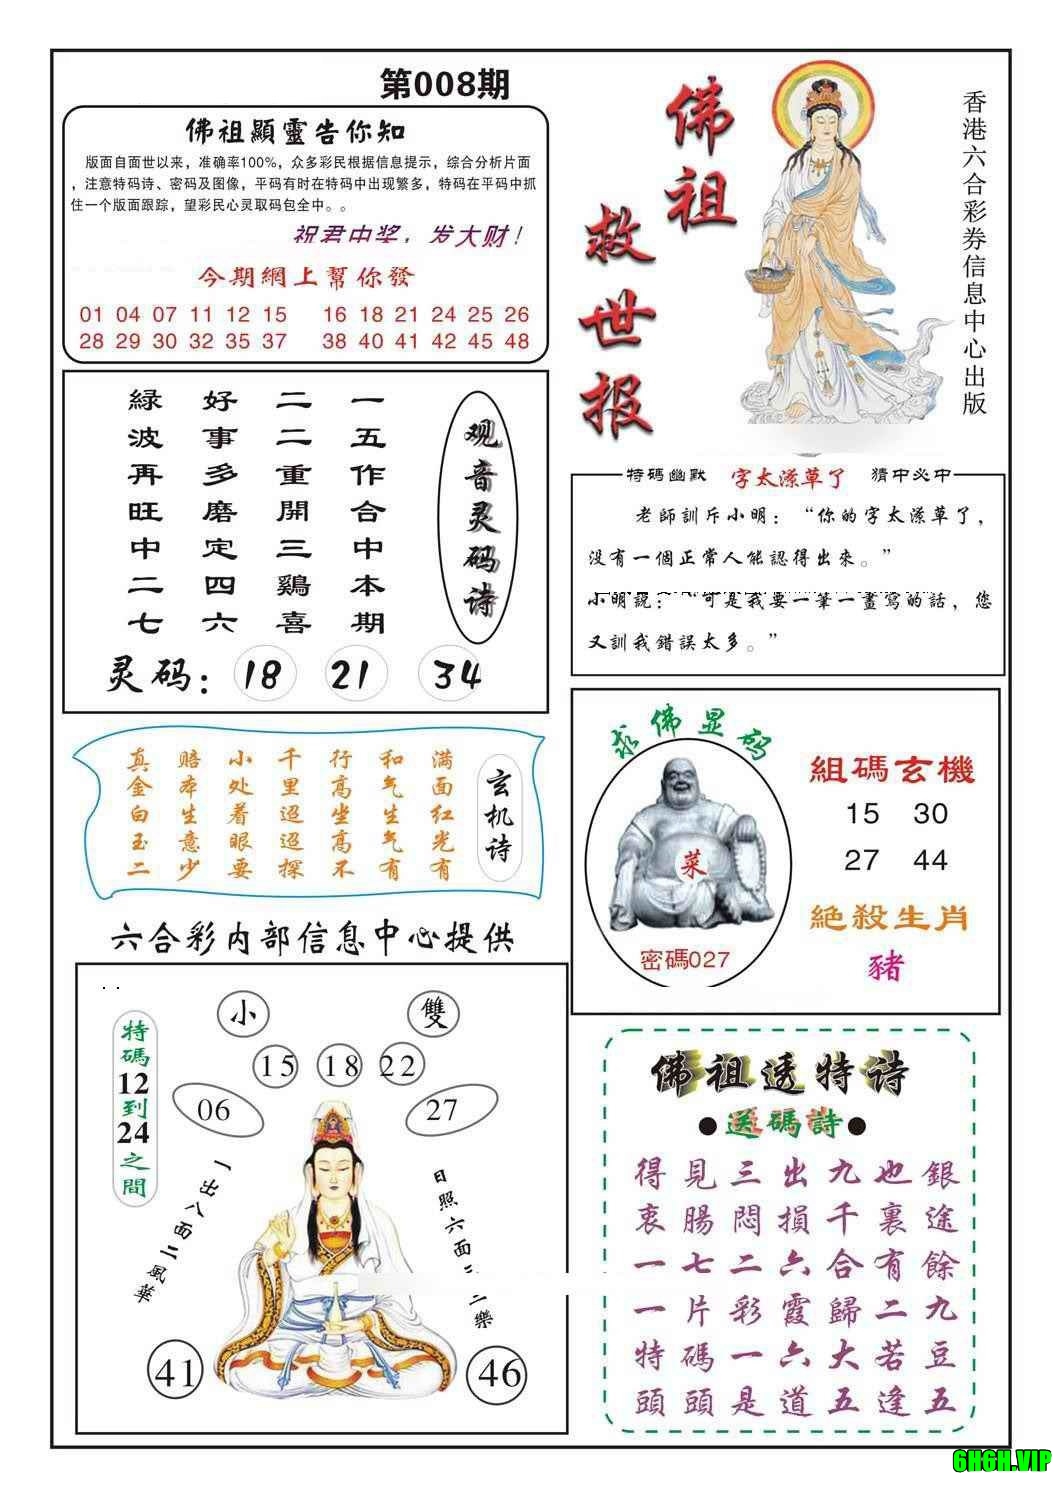 第008期
佛祖顯靈告你知
版面自面世以来，准确率100%，众多彩民根据信息提示，综合分析片面
，注意特码诗、密码及图像，平码有时在特码中出现繁多，特码在平码中抓
住一个版面跟踪，望彩民心灵取码包全中。。
祝君中奖，发大财！
今期網上幫你發
01 04 07 11 12 15 16 18 21 24 25 26
28 29 30 32 35 37 38 40 41 42 45 48
佛祖
救世报
香港六合彩券信息中心出版
观音灵码诗
一五作合中本期
二二重開三鷄喜
好事多磨定四六
緑波再旺中二七
灵码：18 21 34
特碼幽默 字太潦草了 猜中必中
老師訓斥小明：“你的字太潦草了，
没有一個正常人能認得出來。”
小明説：“可是我要一筆一畫寫的話，您
又訓我錯誤太多。”
玄机诗
满面红光有有
和气生气有
行高坐高不
千里迢迢探
小处着眼要
赔本生意少
真金白玉二
求佛显码
菜
密碼027
組碼玄機
15 30
27 44
絶殺生肖
豬
六合彩内部信息中心提供
特碼12到24之間
小 雙
15 18 22
06 27
一出八面二風華
日照六面三二樂
41 46
佛祖透特诗
●送碼詩●
得見三出九也銀
衷腸悶損千裏途
一七二六合有餘
一片彩霞歸二九
特碼一六大若豆
頭頭是道五逢五
6H6H.VIP